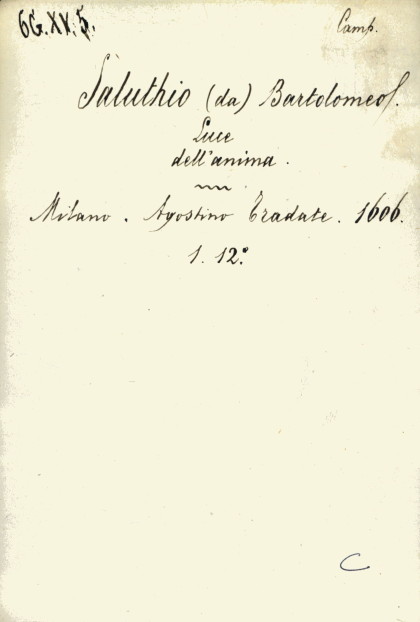 6G.XV.5. Camp.
Saluthio (da) Bartolomeo.
Luce
dell'anima.
Milano. Agostino Tradate. 1606.
1. 12º.
C